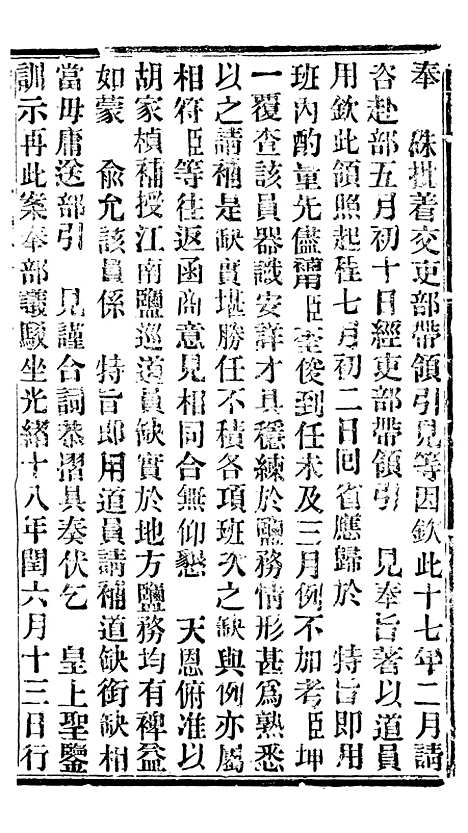 奉　硃批着交吏部帶領引見等因欽此十七年二月請
咨赴部五月初十日經吏部帶領引　見奉旨著以道員
用欽此領照起程七月初二日囘省應歸於　特旨即用
班內酌量先儘臣奎俊到任未及三月例不加考臣坤
一覆查該員器識安詳才具穩練於鹽務情形甚爲熟悉
以之請補是缺實堪勝任不積各項班次之缺與例亦屬
相符臣等往返函商意見相同合無仰懇　天恩俯准以
胡家楨補授江南鹽巡道員缺實於地方鹽務均有裨益
如蒙　俞允該員係　特旨即用道員請補道缺銜缺相
當毋庸送部引　見謹合詞恭摺具奏伏乞　皇上聖鑒
訓示再此案奉部議駁坐光緒十八年閏六月十三日行